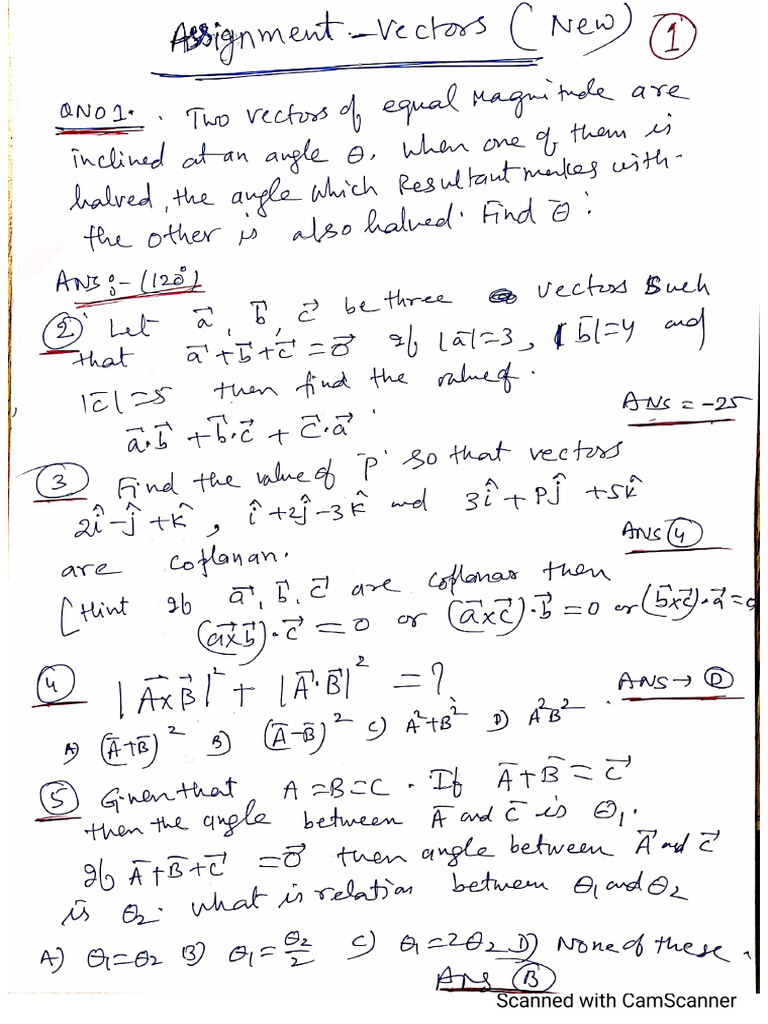 Assignment - Vectors (New) 1
QNO1. Two vectors of equal Magnitude are
inclined at an angle θ. When one of them is
halved, the angle which Resultant makes with-
the other is also halved. Find θ.
ANS:-(120°)
2 Let a⃗, b⃗, c⃗ be three vectors Such
that a⃗+b⃗+c⃗=0⃗ If |a⃗|=3, |b⃗|=4 and
|c⃗|=5 then find the value of.
a⃗·b⃗+b⃗·c⃗+c⃗·a⃗
ANS = -25
3 Find the value of 'P' so that vectors
2î-ĵ+k̂, î+2ĵ-3k̂ and 3î+Pĵ+5k̂
are coplanar.
ANS 4
[Hint If a⃗, b⃗, c⃗ are coplanar then
(a⃗×b⃗)·c⃗=0 or (a⃗×c⃗)·b⃗=0 or (b⃗×c⃗)·a⃗=0
4 |A⃗×B⃗|²+|A⃗·B⃗|²=?
ANS→ D
A) (A̅+B̅)² B) (A̅-B̅)² C) A²+B² D) A²B²
5 Given that A=B=C. If A̅+B̅=C⃗
then the angle between A̅ and C̅ is θ₁.
If A̅+B̅+C⃗=0⃗ then angle between A⃗ and C⃗
is θ₂. What is relation between θ₁ and θ₂
A) θ₁=θ₂ B) θ₁=θ₂/2 C) θ₁=2θ₂ D) None of these.
Ans B
Scanned with CamScanner